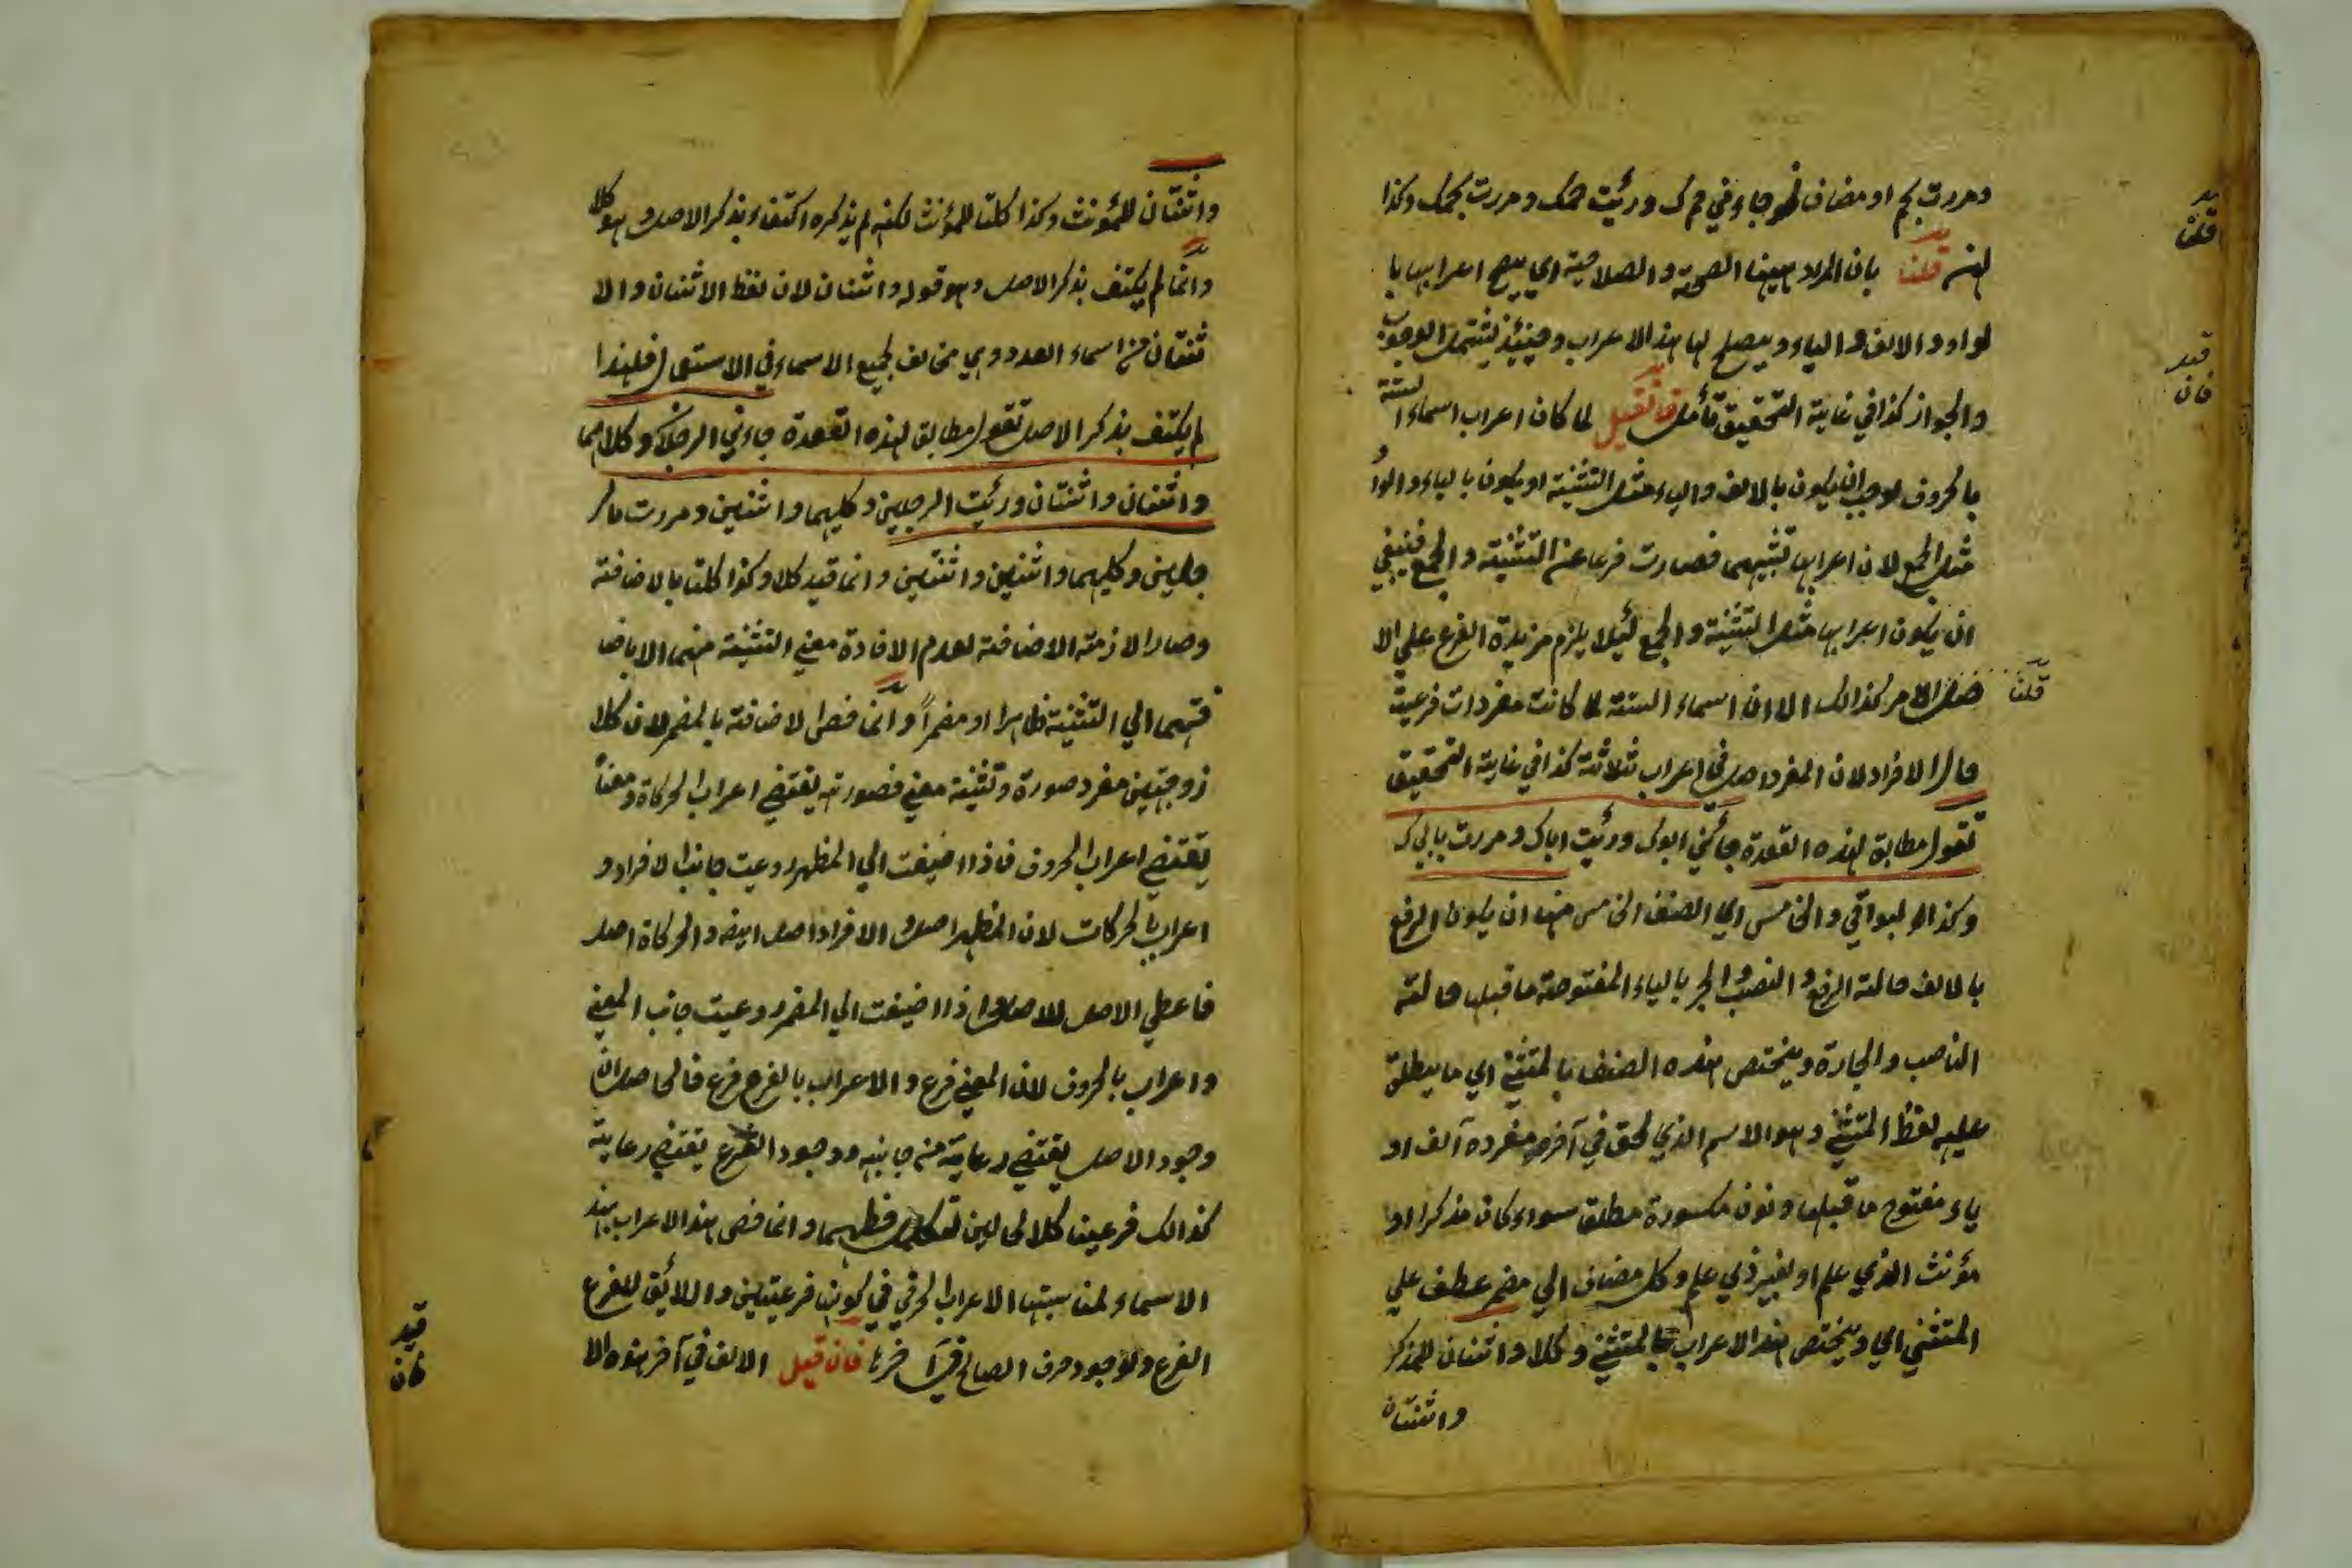 ومررت بحم او مضاف نحو جاءني حموك ورئيت حمك ومررت بحمك وكذا
هن قلنا بان المراد ههنا الصحة والصلاحية اي يصح اعرابها با
لواو والالف والياء ويصلح لها هذا الاعراب وحينئذ يشتمل الوجوب
والجواز كذا في غاية التحقيق تأمل فان قيل لما كان اعراب اسماء الستة
بالحروف لوجب ان يكون بالالف والياء مثل التثنية او يكون بالياء والواو
مثل الجمع لان اعرابها تشبيههما فصارت فرعا عن التثنية والجمع فينبغي
ان يكون اعرابها مثل التثنية والجمع لئلا يلزم مزيدة الفرع علي الا
صل الامر كذالك الا ان اسماء الستة لما كانت مفردات فرعيت
حال الافراد لان المفرد اصل في اعراب ثلاثة كذا في غاية التحقيق
تقول مطابقة لهذه القعدة جائني ابوك ورئيت اباك ومررت بابيك
وكذا البواقي والخامس اي الصنف الخامس منها ان يكون الرفع
بالالف حالة الرفع والنصب والجر بالياء المفتوحة ما قبلها حالة
الناصب والجارة ويختص هذه الصنف بالمثني اي ما يطلق
عليه لفظ المثني وهو الاسم الذي لحق في آخر مفرده آلف او
ياء مفتوح ما قبلها ونون مكسورة مطلق سواء كان مذكرا او
مؤنث الذي علم او لغير ذي علم وكل مضاف الي مضمر عطف علي
المثني اي ويختص هذا الاعراب بالمثني وكلا واثنان للمذكر
واثنتان
قلنا
قيد
فان
قلنا
واثنتان للمؤنث وكذا كلتا للمؤنث لكنه لم يذكره اكتفاء بذكر الاصل وهو كلا
وانما لم يكتف بذكر الاصل وهو قوله واثنان لان لفظ الاثنان والا
ثنتان من اسماء العدد وهي مخالف لجميع الاسماء في الاستعمال فلهذا
لم يكتف بذكر الاصل تقول مطابق لهذه القعدة جاءني الرجلان وكلاهما
واثنان واثنتان ورئيت الرجلين وكليهما واثنين ومررت بالر
جلين وكليهما واثنين واثنتين وانما قيد كلا وكذا كلتا بالاضافة
وصارا لازمة الاضافة لعدم الافادة معني التثنية منهما الا باضا
فتهما الي التثنية ظاهرا او مضمراً وانما خص الاضافة بالمضمر لان كلا
ذو جهتين مفرد صورة وتثنية معني فصورته يقتضي اعراب الحركاة ومعناً
يقتضي اعراب الحروف فاذا اضيفت الي المظهر روعيت جانب الافراد و
اعراب بالحركات لان المظهر اصل والافراد اصل ايضه والحركاة اصل
فاعطي الاصل للاصل واذا اضيفت الي المضمر روعيت جانب المعني
واعراب بالحروف لان المعني فرع والاعراب بالفرع فرع فالحاصل ان
وجود الاصل يقتضي رعاية من جانبه ووجود الفرع يقتضي رعاية
كذالك فرعينا كلا الحالين وانما خص هذا الاعراب بهذ
الاسماء لمناسبتها الاعراب الحرفي في كونها فرعيتين واللائق للفرع
الفرع ولوجود حرف الصالح في آخرها فان قيل الالف في آخر هذه الا
قيد
فان